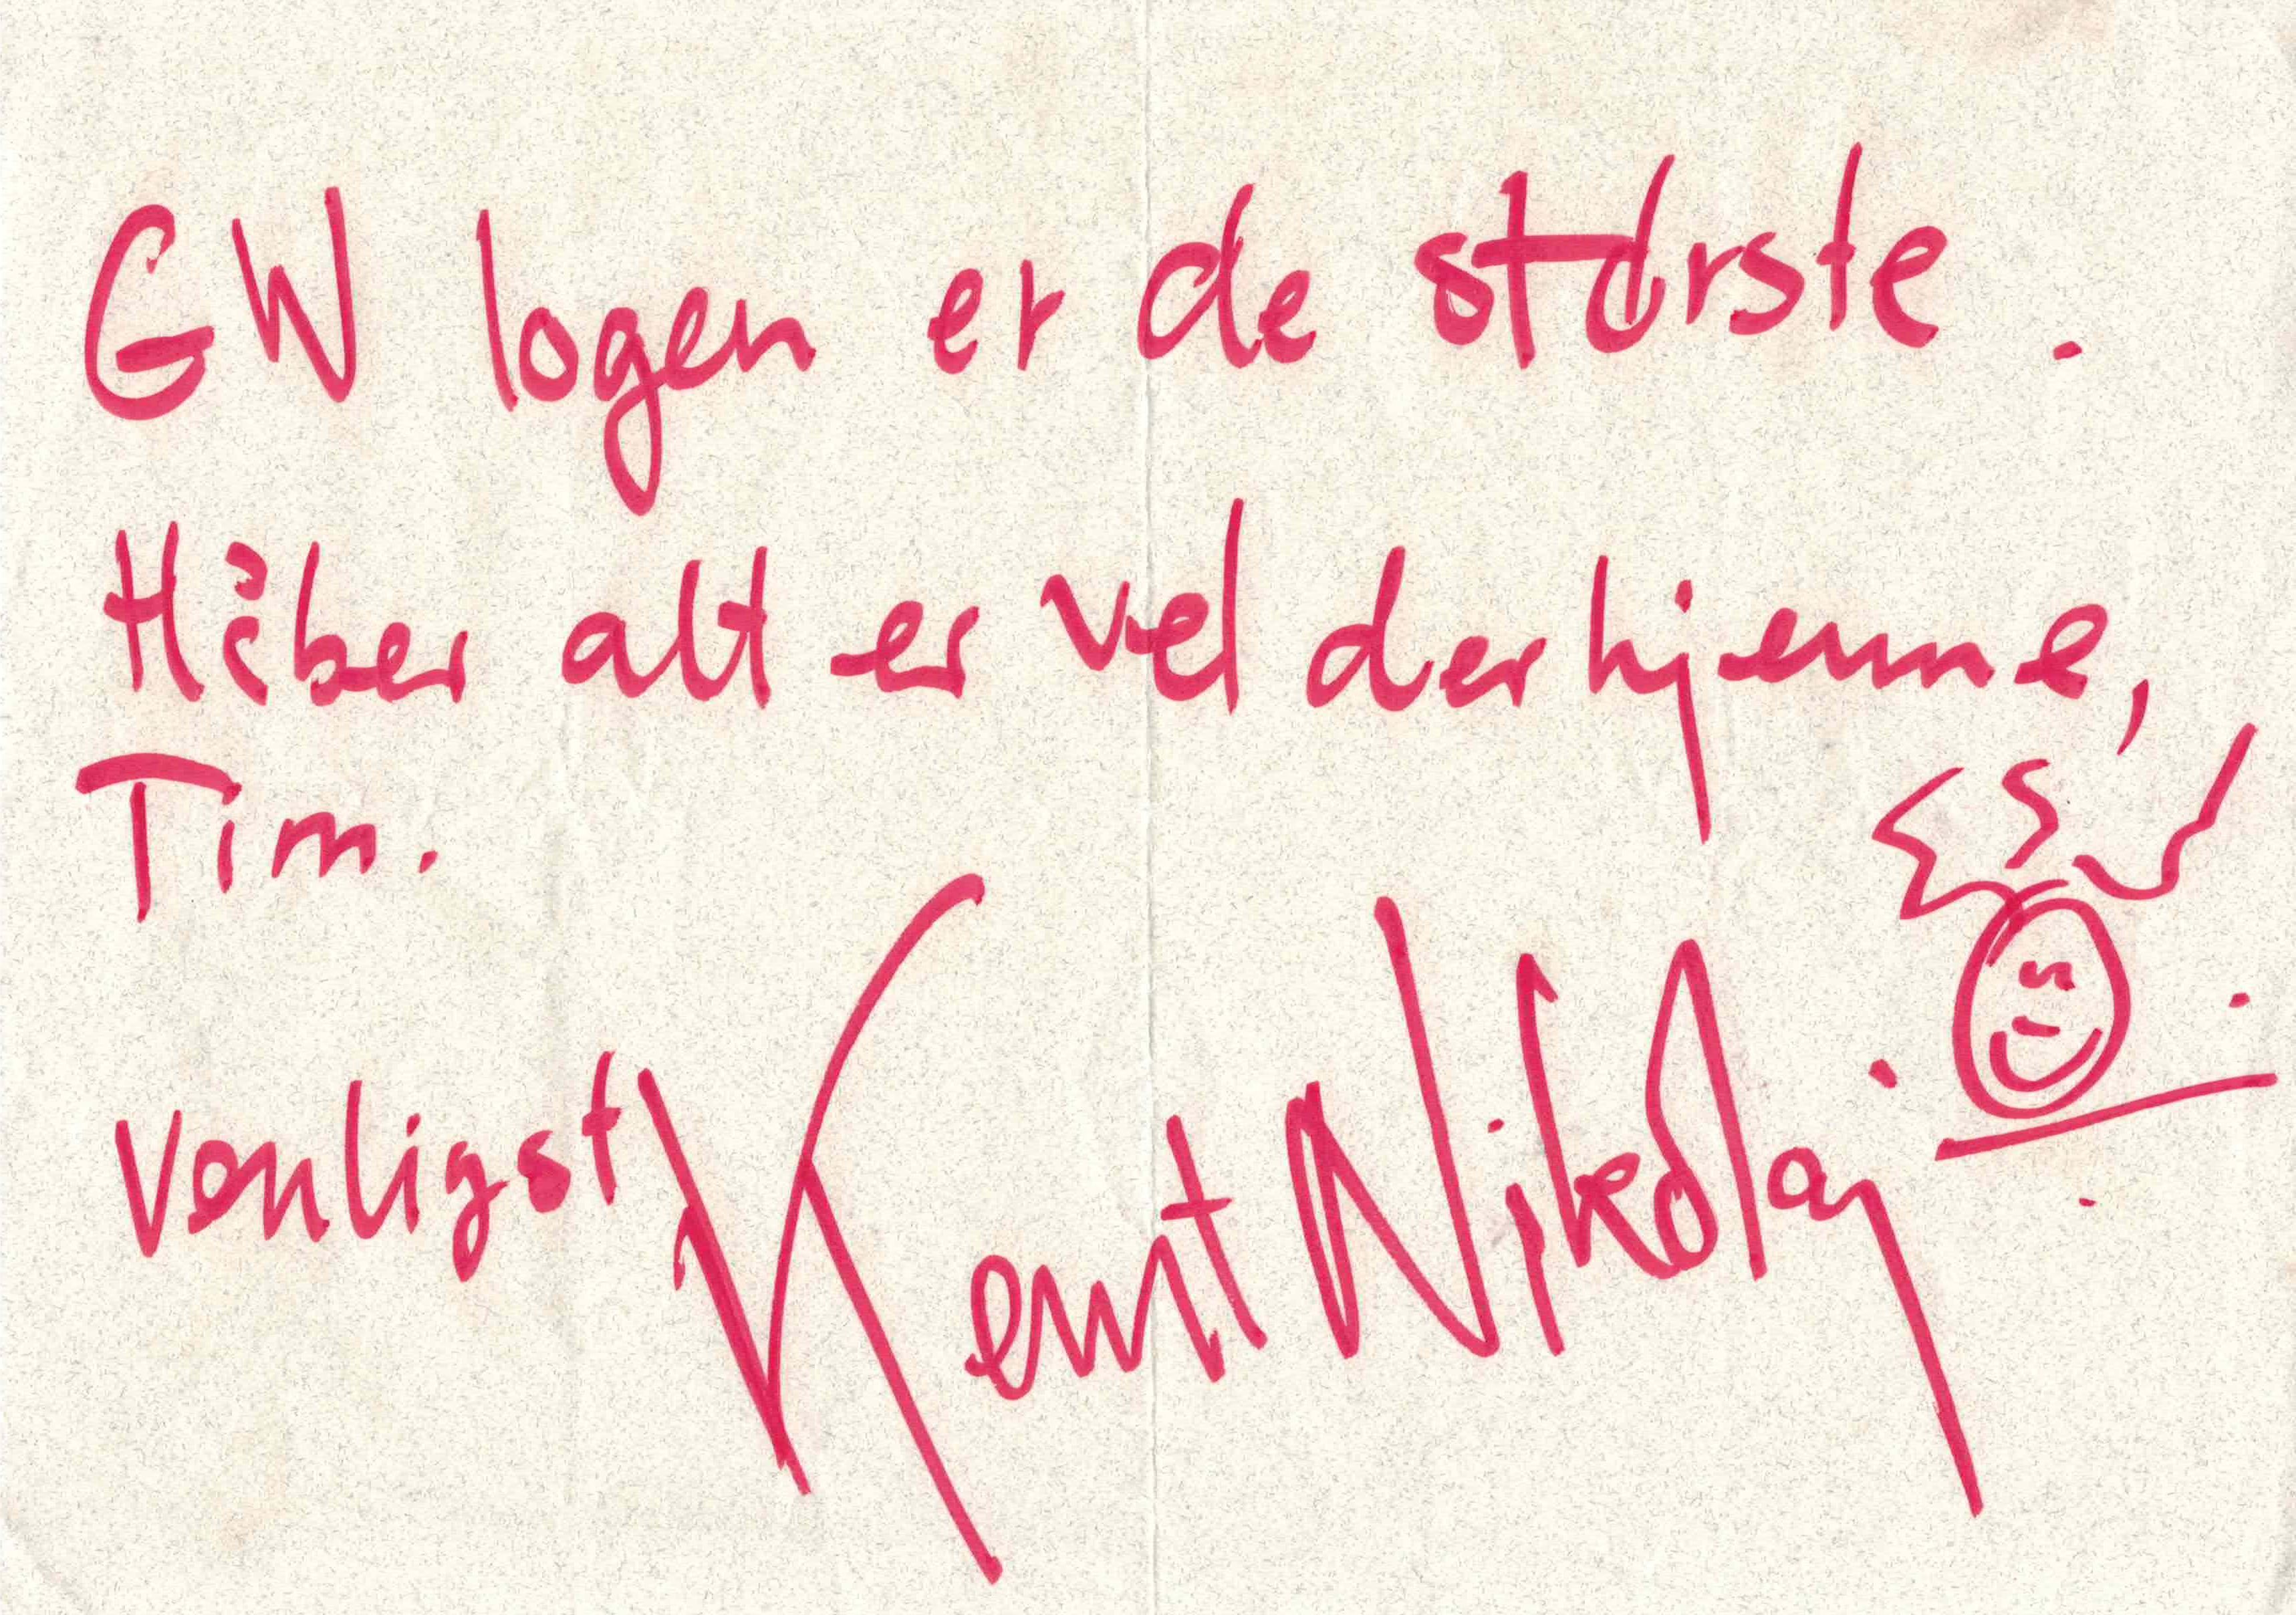 GW logen er de største.
Håber alt er vel derhjemme,
Tim.
Venligst Kent Nikolaj